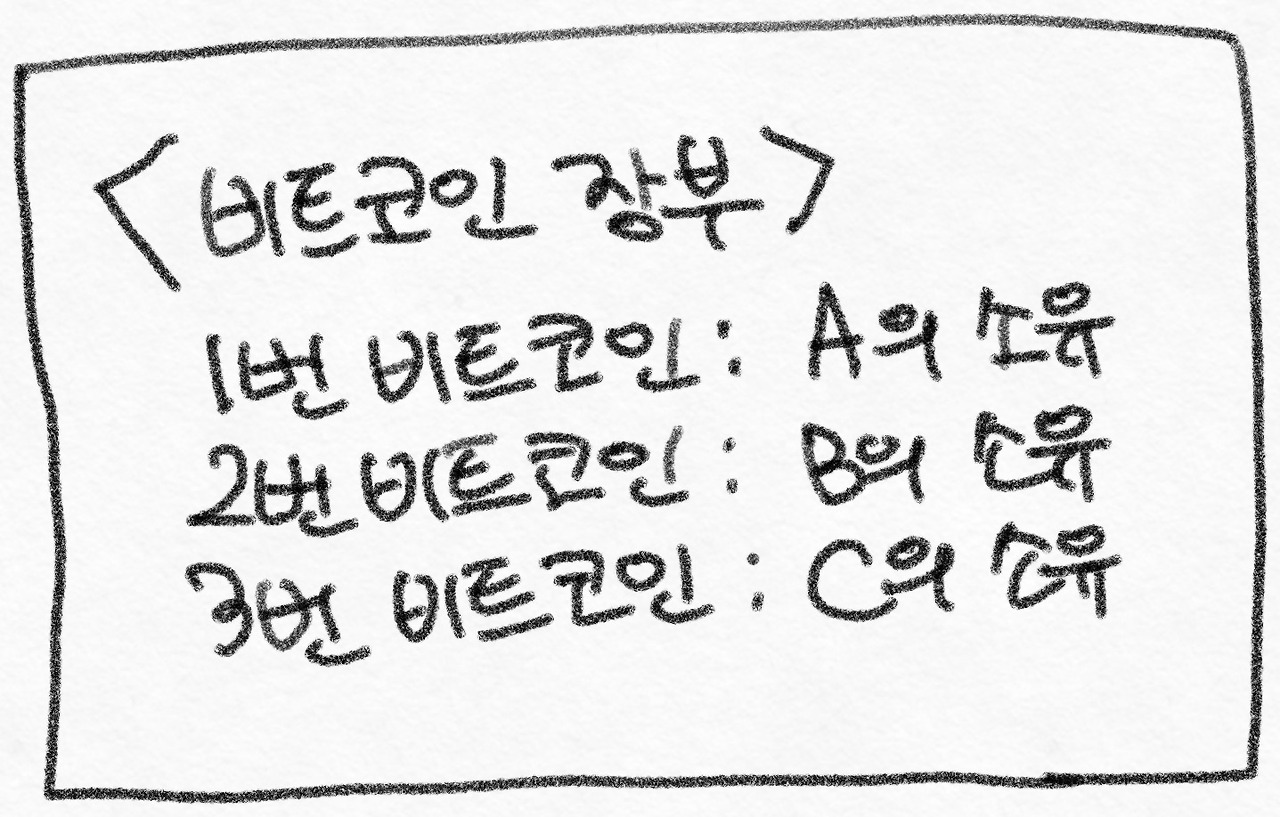 <비트코인 장부>
1번 비트코인 : A의 소유
2번 비트코인 : B의 소유
3번 비트코인 : C의 소유